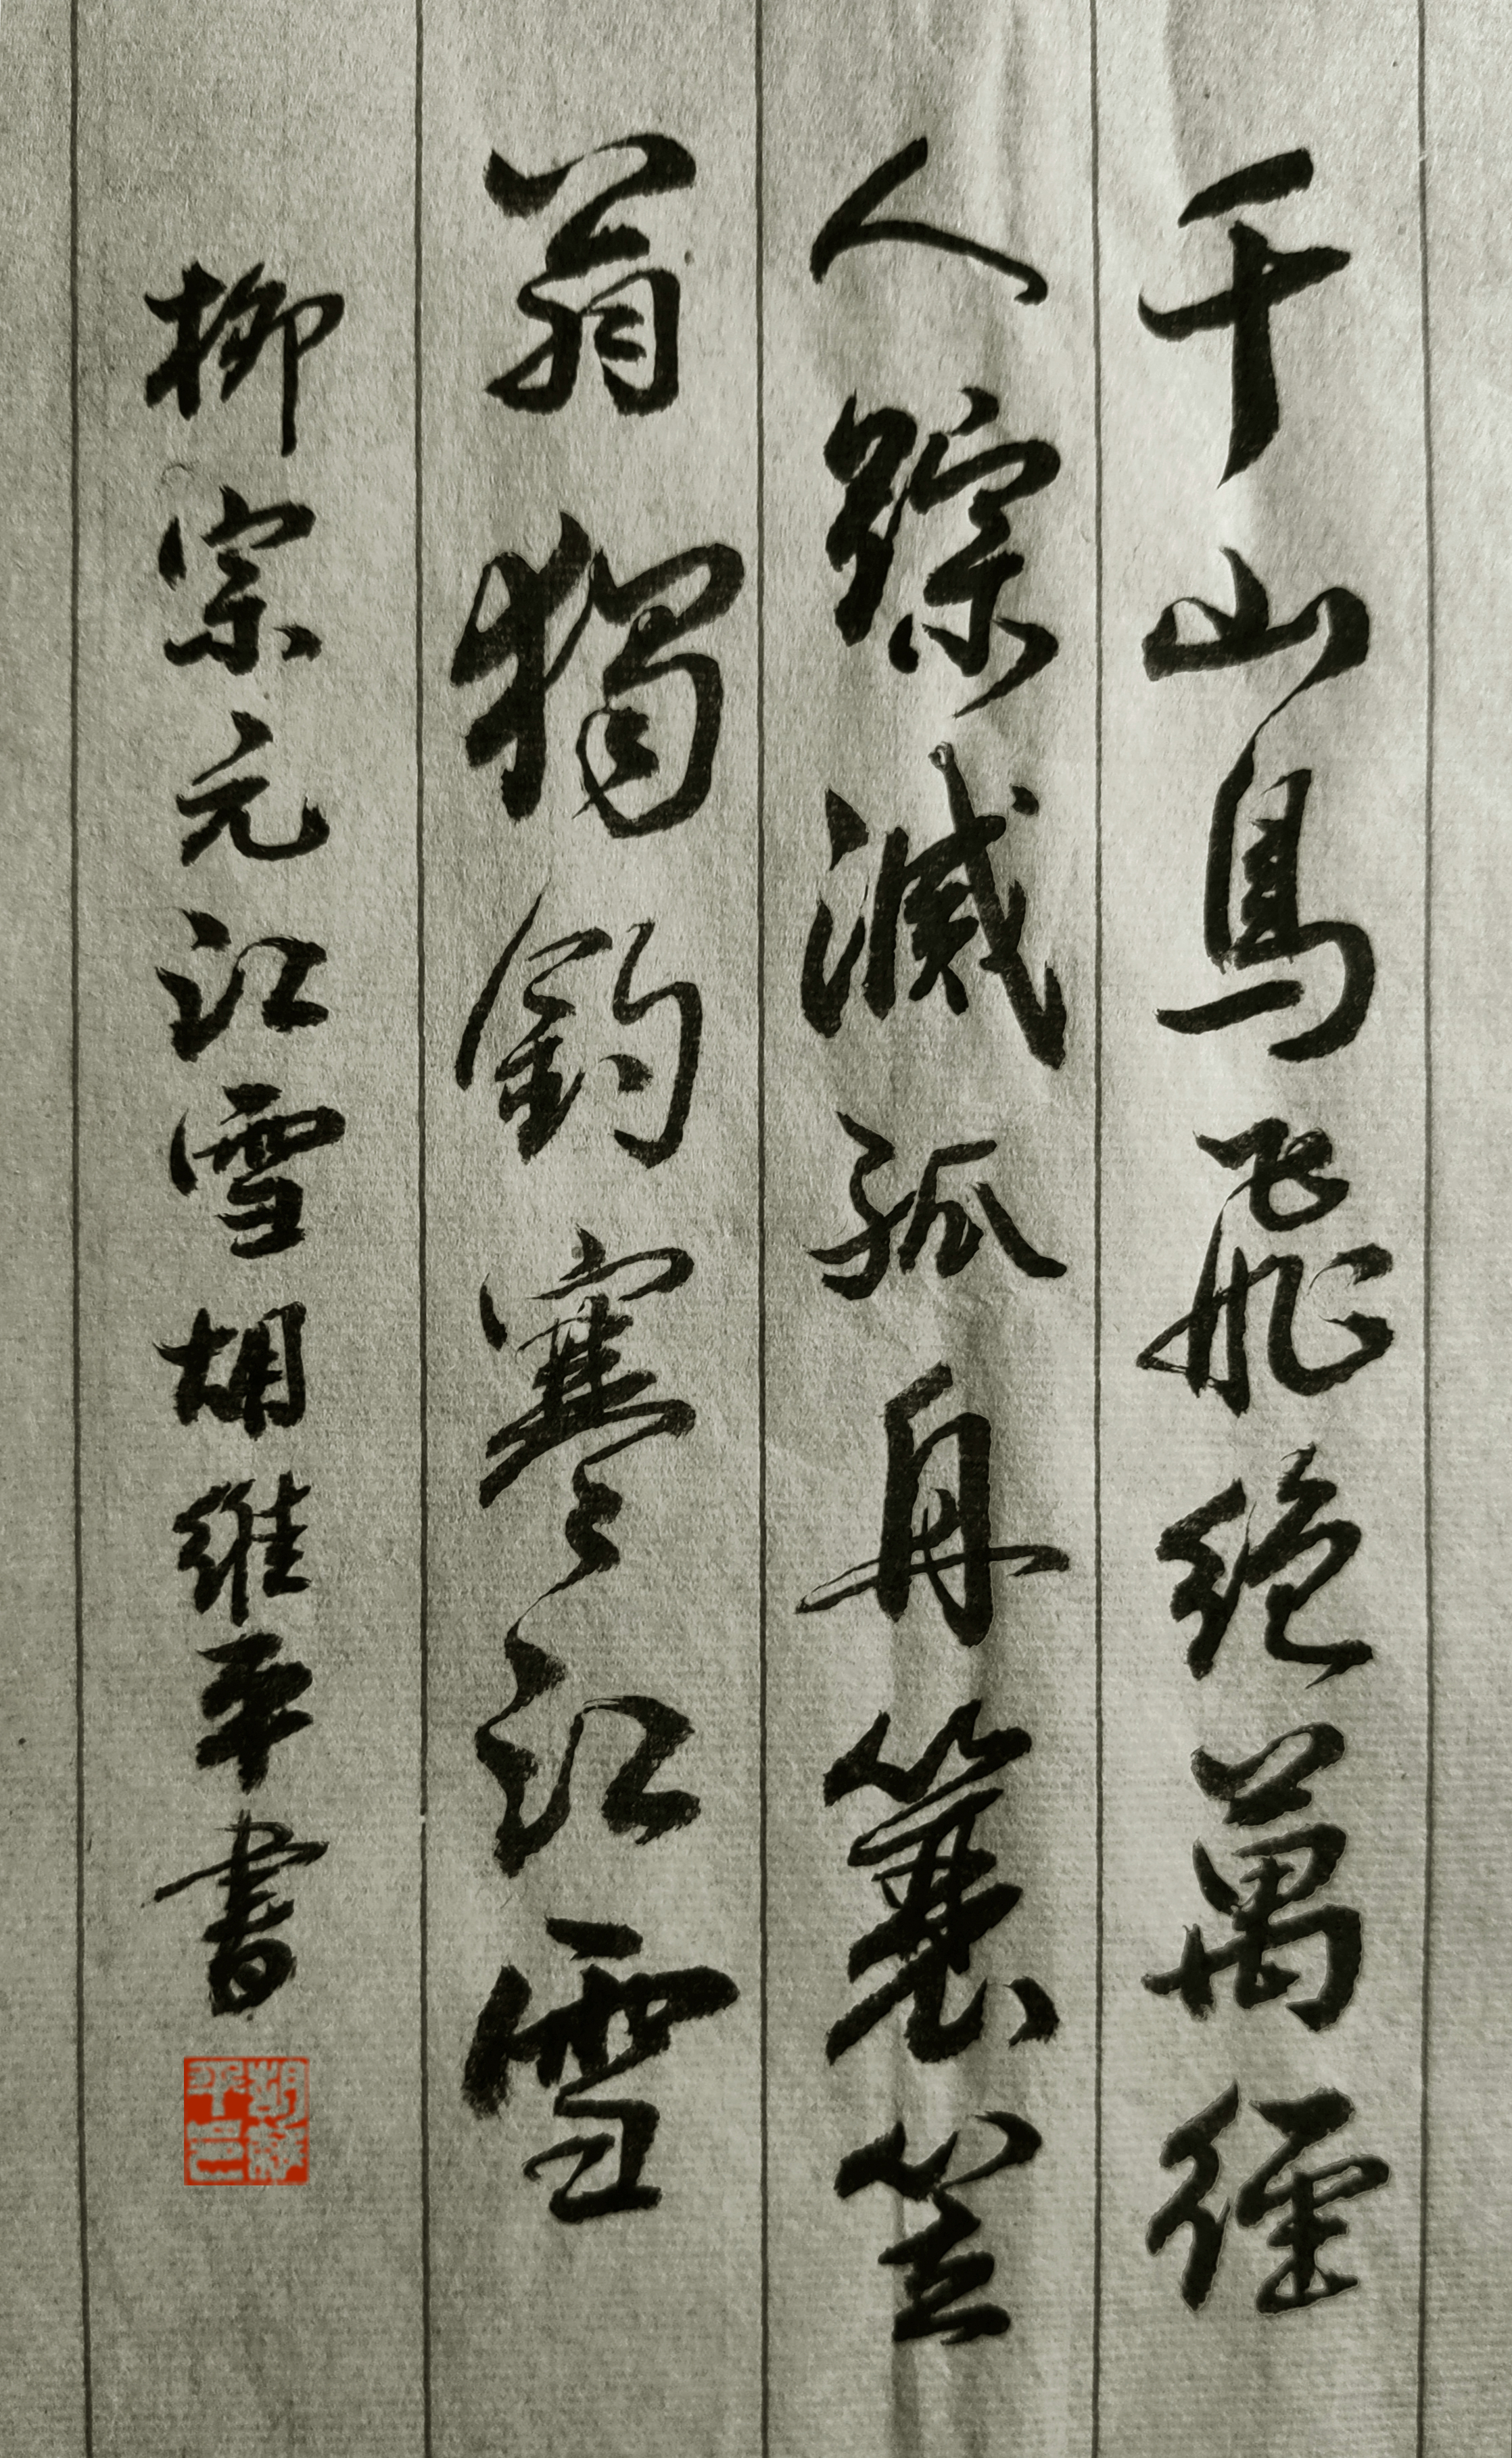 千山鳥飛絶萬徑
人踪滅孤舟蓑笠
翁獨釣寒江雪
柳宗元江雪胡維平書